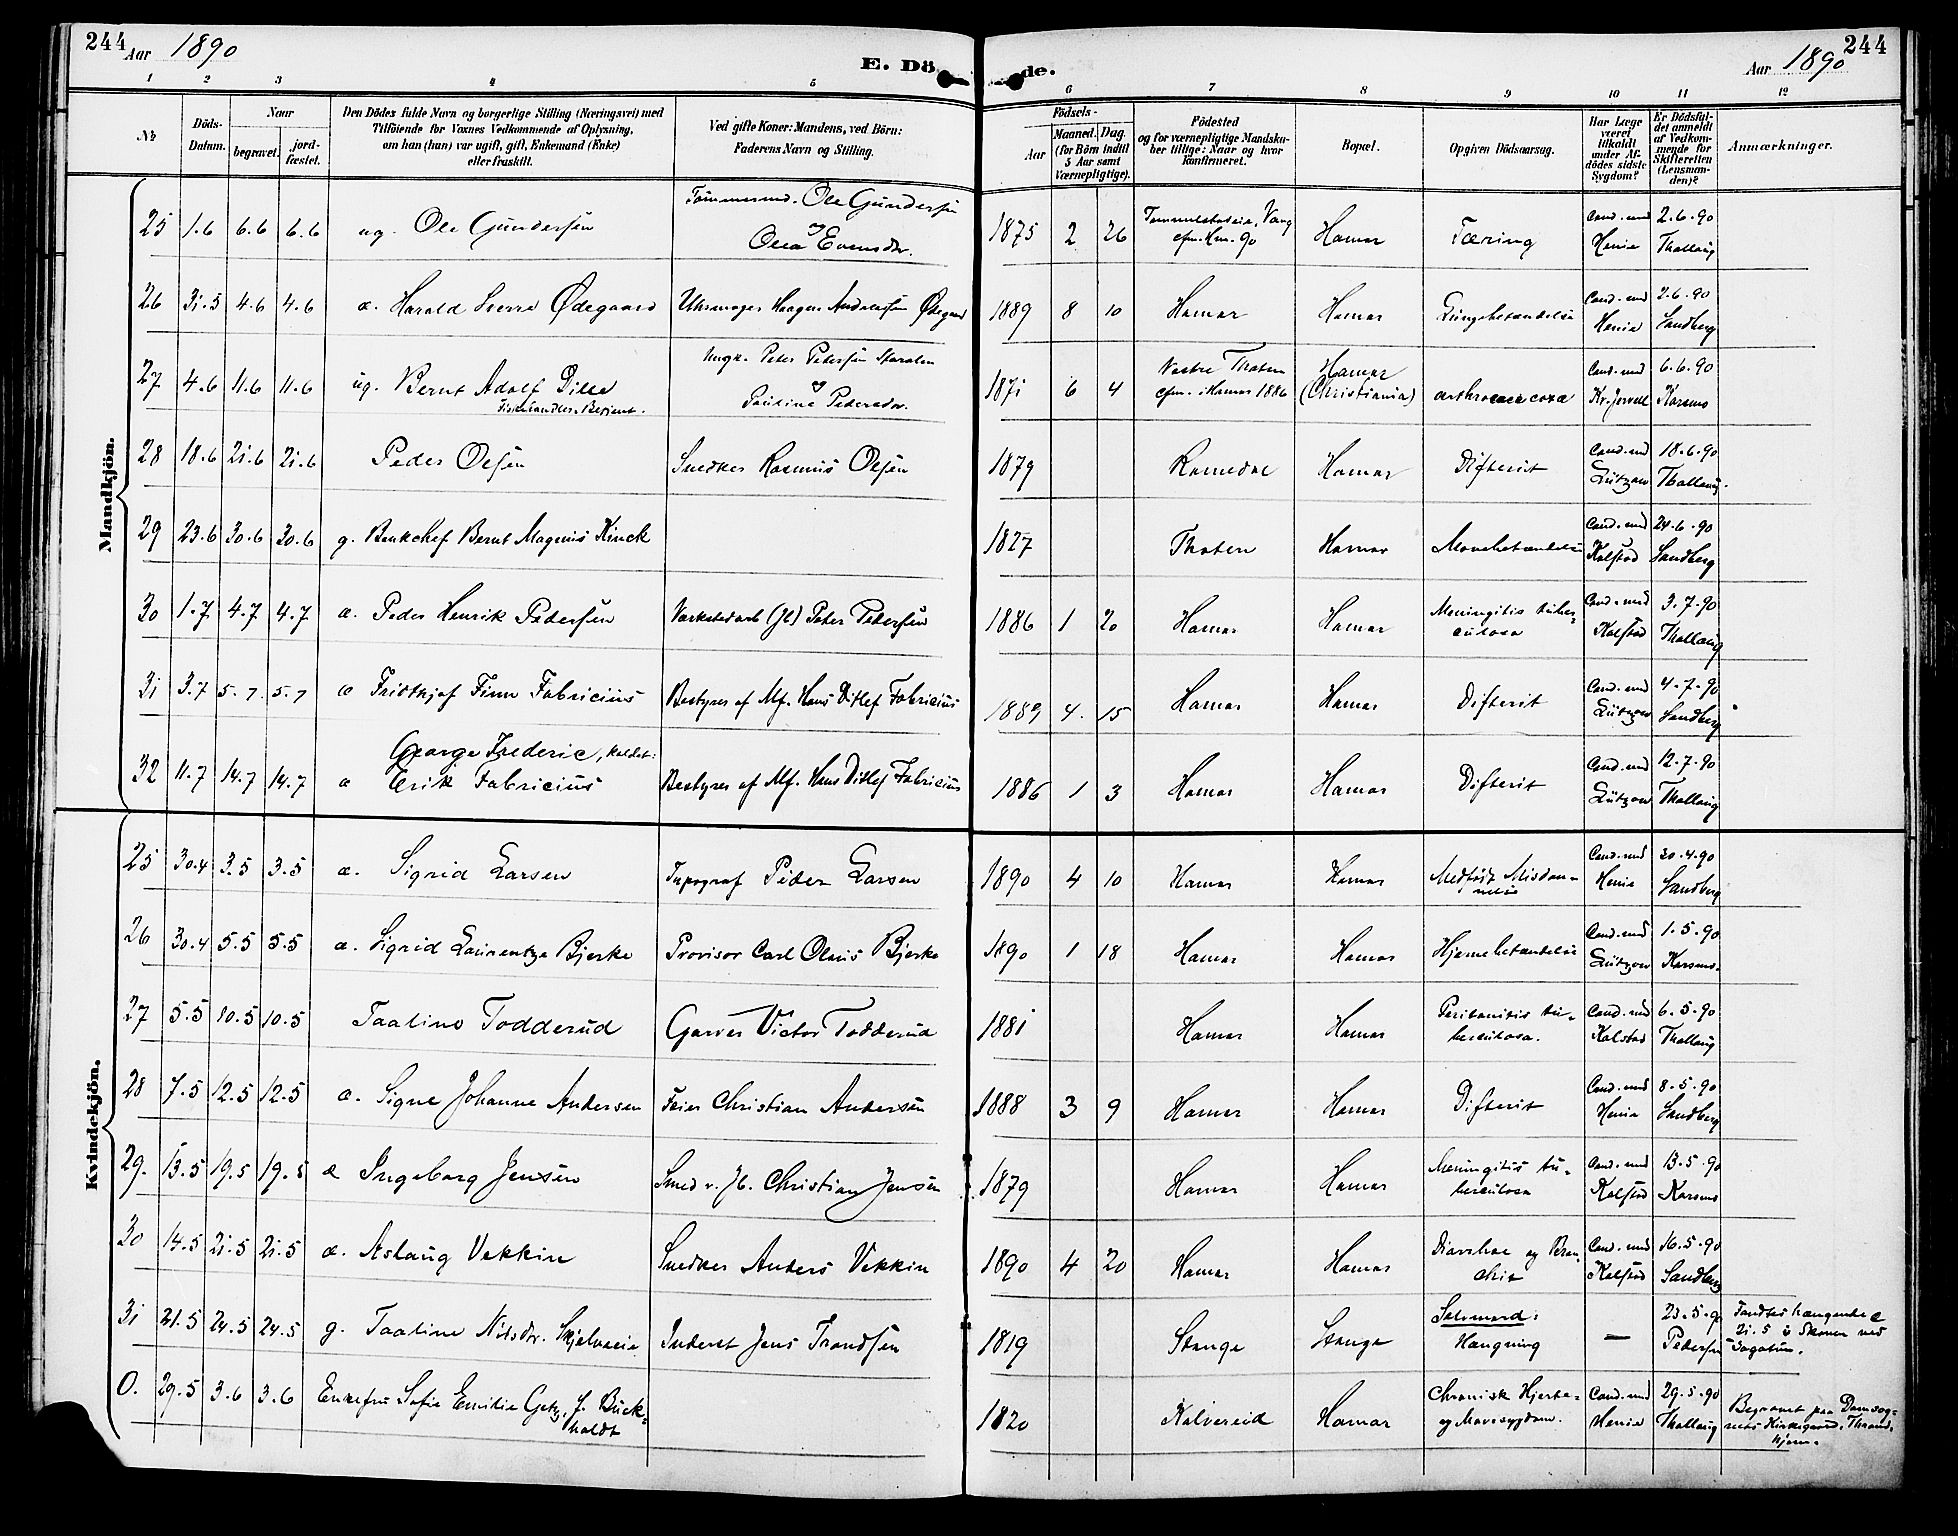 244 Aar 1890
E. Dö
de.
Aar 1890 244
1 2 3 4 5 6 7 8 9 10 11 12
№
Döds-Datum.
Naar
begravet.
jord-fæstet.
Den Dödes fulde Navn og borgerlige Stilling (Næringsvei) med
Tilföiende for Voxnes Vedkommende af Oplysning,
om han (hun) var ugift, gift, Enkemand (Enke)
eller fraskilt.
Ved gifte Koner: Mandens, ved Börn:
Faderens Navn og Stilling.
Födsels-
Aar
Maaned. Dag.
(for Börn indtil
5 Aar samt
Værnepligtige).
Födested
og for værnepligtige Mandska-
ber tillige: Naar og hvor
konfirmeret.
Bopæl.
Opgiven Dödsaarsag.
Har Læge
været
tilkaldt
under Af-
dödes sidste
Sygdom?
Er Dödsfal-
det anmeldt
af Vedkom-
mende for
Skifteretten
(Lensman-
den)?
Anmærkninger.
Mandkjön.
25 1.6 6.6 6.6 ug. Ole Gundersen Tømmermd. Ole Gundersen og Olea Evensdr. 1875 2 26 Vang cfm. Hm. 90 Hamar Tæring Cand. med Henie 2.6.90 Thallaug
26 31.5 4.6 4.6 a. Harald Sverre Ødegaard Uhrmager Haagen Andreassen Ødegaard 1889 8 10 Hamar Hamar Lungebetændelse Cand. med Henie 2.6.90 Sandberg
27 4.6 11.6 11.6 ug. Bernt Adolf Dille Fiskehandler Betjent. Ungk. Peter Petersen Staralen og Pauline Pedersdr. 1871 6 4 Vestre Thoten cfm. i Hamar 1886 Hamar (Christiania) arthrocace coxæ Cand. med Kr. Jervell 6.6.90 Karsmo
28 18.6 21.6 21.6 Peder Olsen Snedker Rasmus Olsen 1879 Romedal Hamar Difterit Cand. med Lützow 18.6.90 Thallaug.
29 23.6 30.6 30.6 g. Bankchef Bernt Magnus Kinck 1827 Thoten Hamar Mavebetændelse Cand. med Kolstad 24.6.90 Sandberg
30 1.7 4.7 4.7 a. Peder Henrik Pedersen Værkstedarb (Jb) Peter Petersen 1886 1 20 Hamar Hamar Meningitis tuber= culosa Cand. med Kolstad 3.7.90 Thallaug
31 3.7 5.7 5.7 a Fridthjof Finn Fabricius Bestyrer af Mf. Hans Ditlef Fabricius 1889 4. 15 Hamar Hamar Difterit Cand. med Lützow 4.7.90 Sandberg
32 11.7 14.7 14.7 a George Frederic, kaldet: Erik Fabricius Bestyrer af Mf. Hans Ditlef Fabricius 1886 1 3 Hamar Hamar Difterit Cand. med Lützow 12.7.90 Thallaug
Kvindekjön.
25 30.4 3.5 3.5 a. Sigrid Larsen Typograf Peder Larsen 1890 4 10 Hamar Hamar Medfødt Misdan= nelse Cand. med Henie 30.4.90 Sandberg
26 30.4 5.5 5.5 a. Sigrid Laurentze Bjerke Provisor Carl Olaus Bjerke 1890 1 18 Hamar Hamar Hjernebetændelse Cand. med Lützow 1.5.90 Karsmo.
27 5.5 10.5 10.5 Taaline Todderud Garver Victor Todderud 1881 Hamar Hamar Peritonitis tu= berculosa. Cand. med Kolstad 6.5.90 Thallaug
28 7.5 12.5 12.5 a. Signe Johanne Andersen Feier Christian Andersen 1888 3 9 Hamar Hamar Difterit Cand. med Henie 8.5.90 Sandberg
29. 13.5 19.5 19.5 a Ingeborg Jensen Smed v. Jb. Christian Jensen 1879 Hamar Hamar Meningitis tu= berculosa Cand. med Kolstad 13.5.90 Karsmo
30 14.5 21.5 21.5 a. Aslaug Vekkin Snedker Anders Vekkin 1890 4 20 Hamar Hamar Diarrhoe og Bron= chit Cand. med Kolstad 16.5.90 Sandberg
31 21.5 24.5 24.5 g. Taaline Nilsdr. Skjelvæeie Inderst Jens Trondsen 1819 Stange Stange Selvmord: Hængning — 23.5.90 Pedersen Fandtes hængende 21.5 i Skoven ved
0. 29.5 3.6 3.6 Enkefru Sofie Emilie Getz, f. Buck= holdt 1820 Kalvereid Hamar Chronisk Hjerte= og Mavesygdom. Cand. med Henie 29.5.90 Thallaug Begravet paa Domsog= nets Kirkegaard, Thrond hjem.